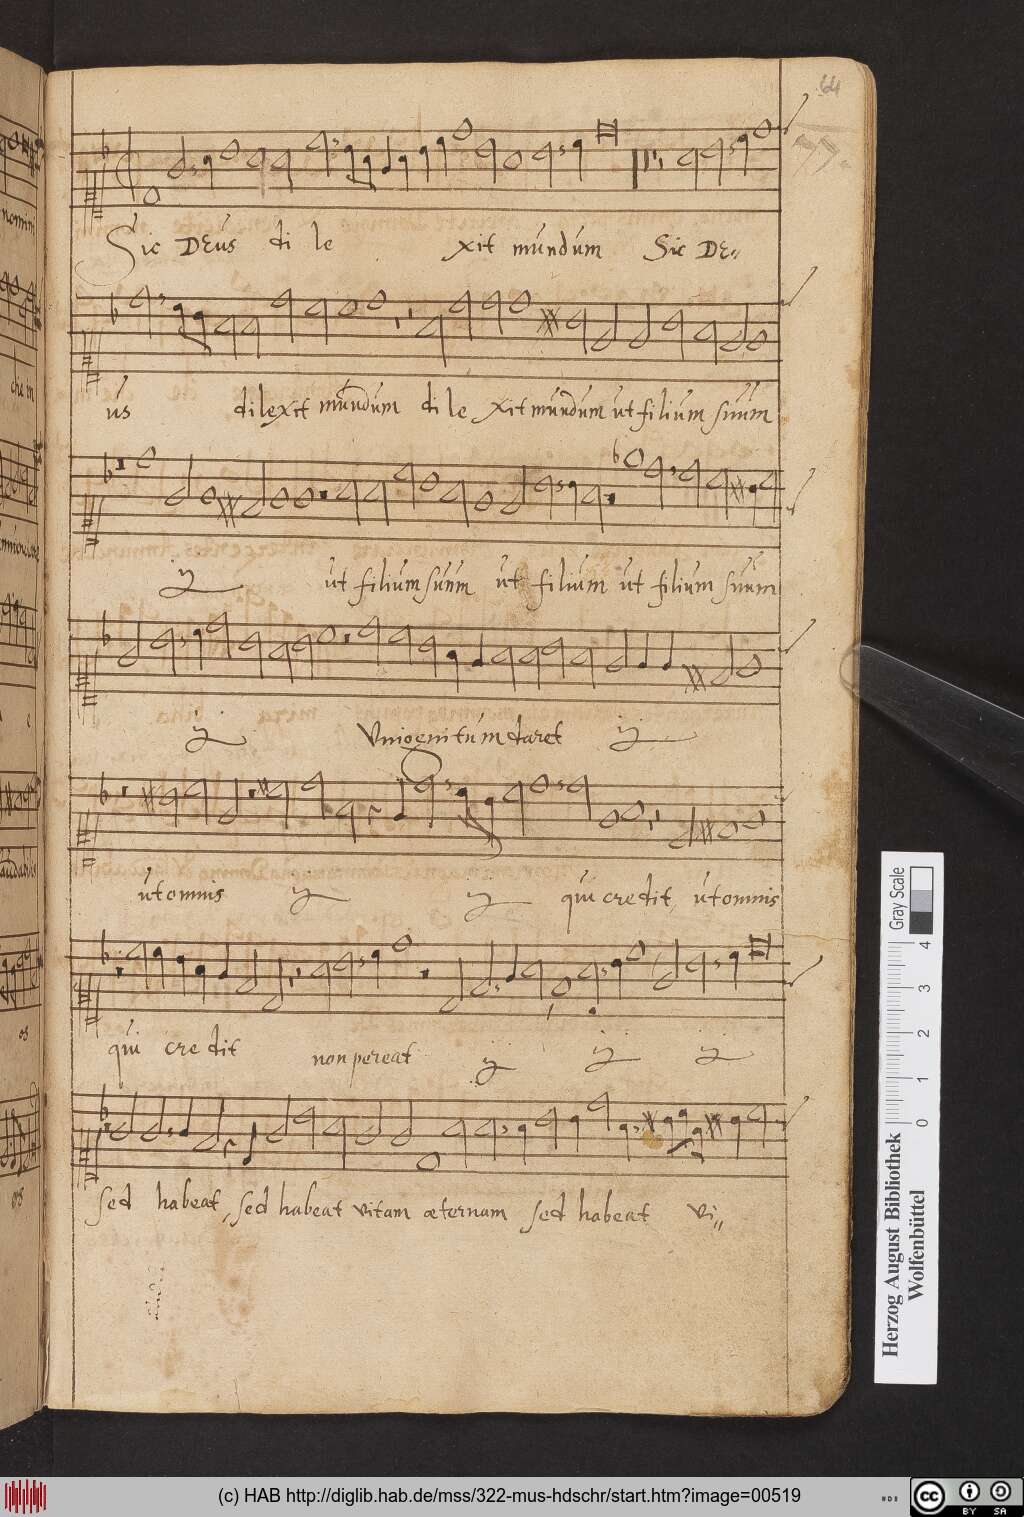 64
77.
Sic DEus di le xit mundum Sic DE„
us dilexit mundum di le xit mundum ut filium suum
ij ut filium suum ut filium ut filium suum
ij Unigenitum daret ij
ut omnis ij ij qui credit, ut omnis
qui cre dit non pereat ij ij ij
sed habeat, sed habeat vitam æternam sed habeat vi„
nomini
os
os
Gray Scale
0 1 2 3 4
Herzog August Bibliothek
Wolfenbüttel
(c) HAB http://diglib.hab.de/mss/322-mus-hdschr/start.htm?image=00519
cc
BY SA